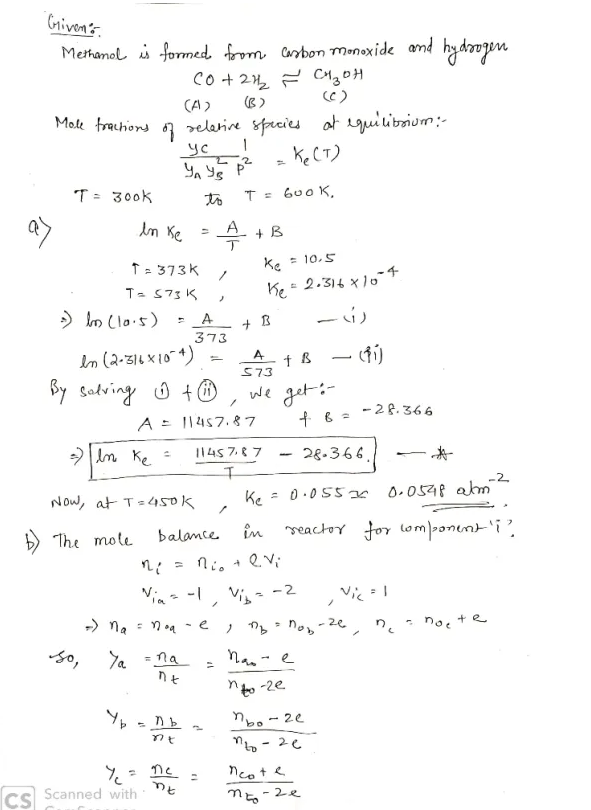 Given:-
Methanol is formed from carbon monoxide and hydrogen
CO + 2H₂ ⇌ CH₃OH
(A) (B) (C)
Mole fractions of relative species at equilibrium:-
yc / (yA yB²) 1/P² = Ke(T)
T = 300K to T = 600K.
a) ln Ke = A/T + B
T = 373K , Ke = 10.5
T = 573K , Ke = 2.316 x 10⁻⁴
⇒ ln(10.5) = A/373 + B — (i)
ln(2.316x10⁻⁴) = A/573 + B — (ii)
By solving (i) + (ii), we get:-
A = 11457.87 + B = -28.366
⇒ ln Ke = 11457.87/T - 28.366. — *
Now, at T=450K , Ke = 0.055 ≈ 0.0548 atm⁻².
b) The mole balance in reactor for component 'i',
ni = nio + eνi
νia = -1, νib = -2, νic = 1
⇒ na = noa - e ; nb = nob - 2e, nc = noc + e
So, Ya = na/nt = (nao - e)/(nto - 2e)
Yb = nb/nt = (nbo - 2e)/(nto - 2e)
Yc = nc/nt = (nco + e)/(nto - 2e)
CS Scanned with